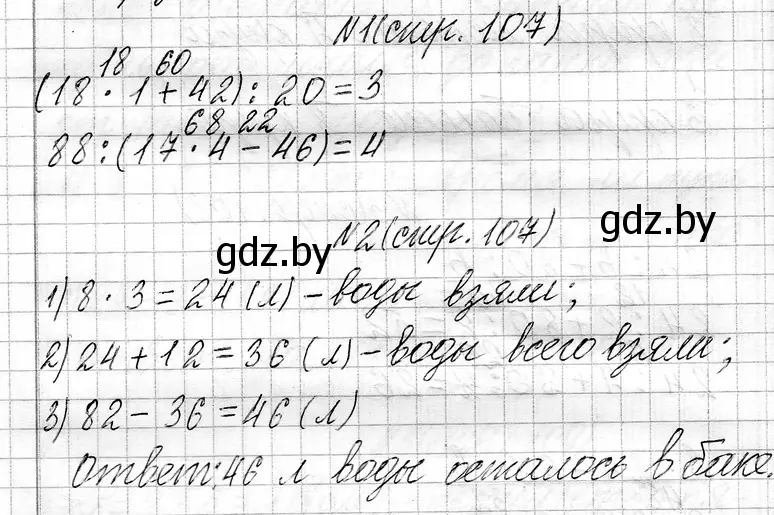 №1(стр. 107)
18 60
(18 · 1 + 42) : 20 = 3
68 22
88 : (17 · 4 - 46) = 4
№2(стр. 107)
gdz.by gdz.by
1) 8 · 3 = 24 (л) - воды взяли;
2) 24 + 12 = 36 (л) - воды всего взяли;
3) 82 - 36 = 46 (л)
Ответ: 46 л воды осталось в баке.